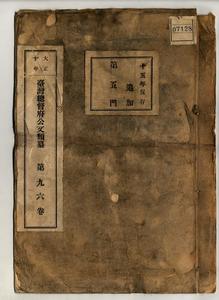 07128
十五年保存
追加
第五門
大正
十年
臺灣總督府公文類纂
第九六卷